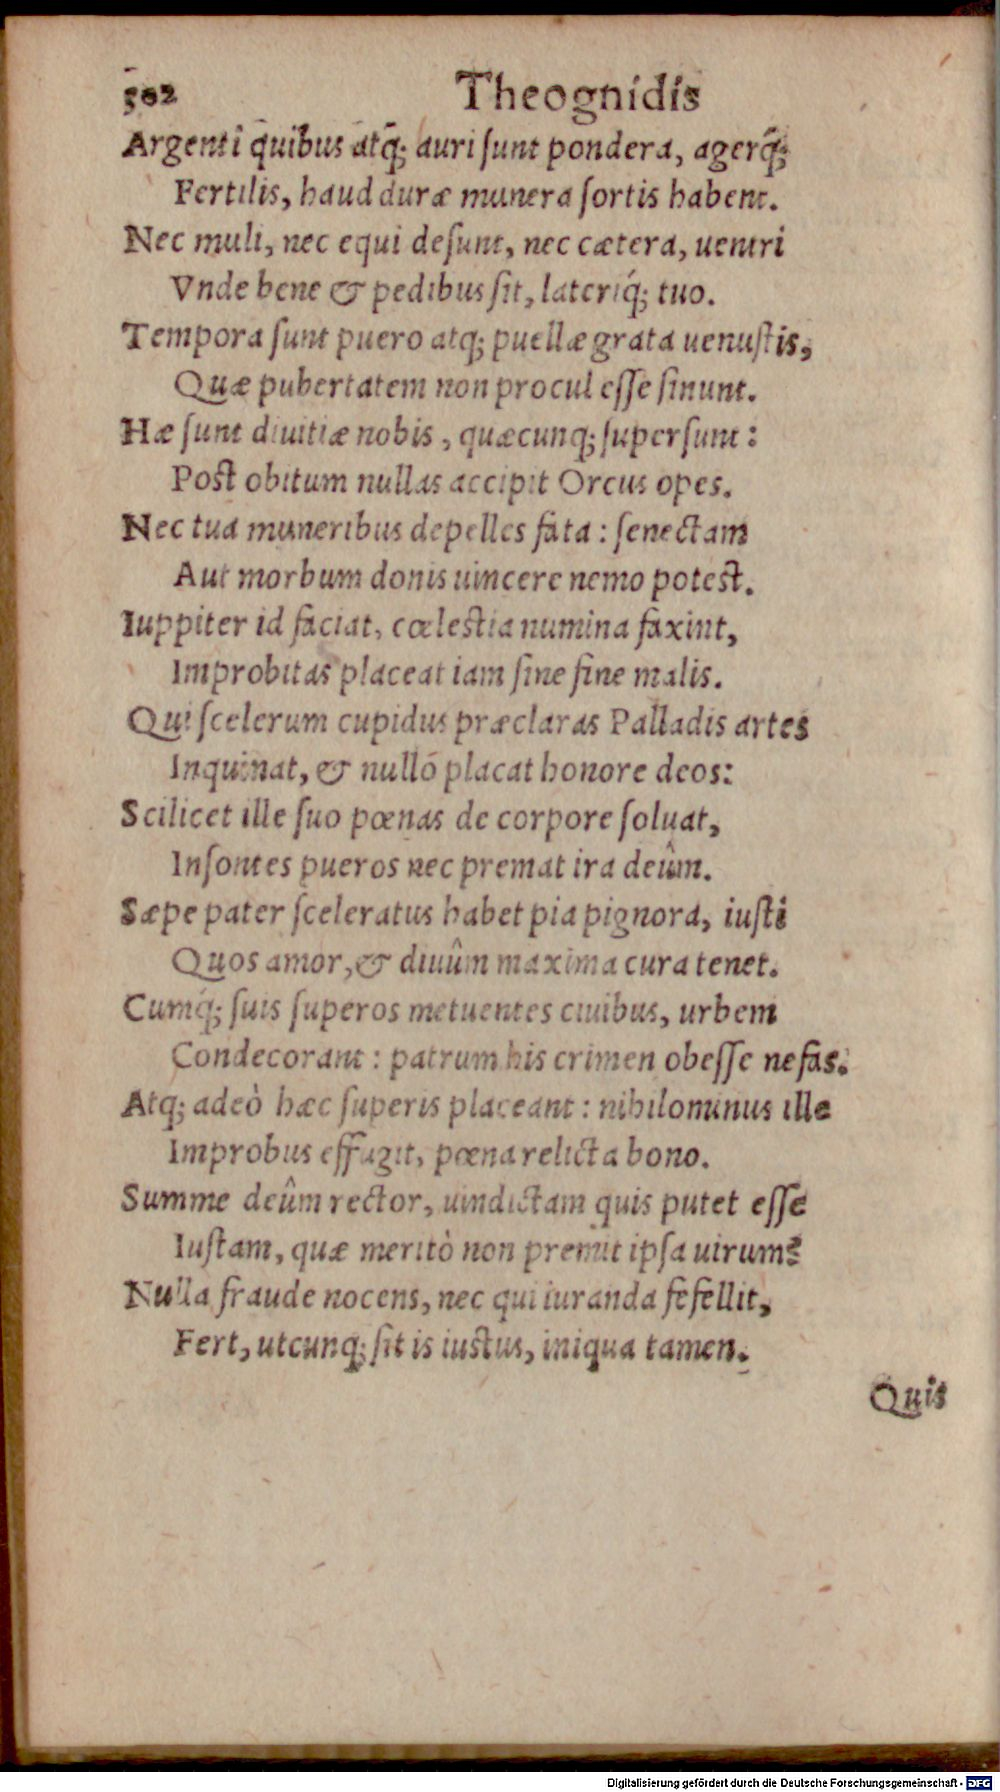 502 Theognidis
Argenti quibus atq́; auri ſunt pondera, agerq́;
Fertilis, haud duræ munera ſortis habent.
Nec muli, nec equi deſunt, nec cætera, uentri
Vnde bene & pedibus ſit, lateriq́; tuo.
Tempora ſunt puero atq; puellæ grata uenuſtis,
Quæ pubertatem non procul eſſe ſinunt.
Hæ ſunt diuitiæ nobis, quæcunq; ſuperſunt:
Poſt obitum nullas accipit Orcus opes.
Nec tua muneribus depelles fata: ſenectam
Aut morbum donis uincere nemo poteſt.
Iuppiter id faciat, cœleſtia numina faxint,
Improbitas placeat iam ſine fine malis.
Qui ſcelerum cupidus præclaras Palladis artes
Inquinat, & nullo placat honore deos:
Scilicet ille ſuo pœnas de corpore ſoluat,
Inſontes pueros nec premat ira deûm.
Sæpe pater ſceleratus habet pia pignora, iuſti
Quos amor, & diuûm maxima cura tenet.
Cumq́; ſuis ſuperos metuentes ciuibus, urbem
Condecorant: patrum his crimen obeſſe nefas.
Atq; adeò hæc ſuperis placeant: nihilominus ille
Improbus effugit, pœna relicta bono.
Summe deûm rector, uindictam quis putet eſſe
Iuſtam, quæ meritò non premit ipſa uirum?
Nulla fraude nocens, nec qui iuranda fefellit,
Fert, utcunq; ſit is iuſtus, iniqua tamen.
Quis
Digitalisierung gefördert durch die Deutsche Forschungsgemeinschaft - DFG